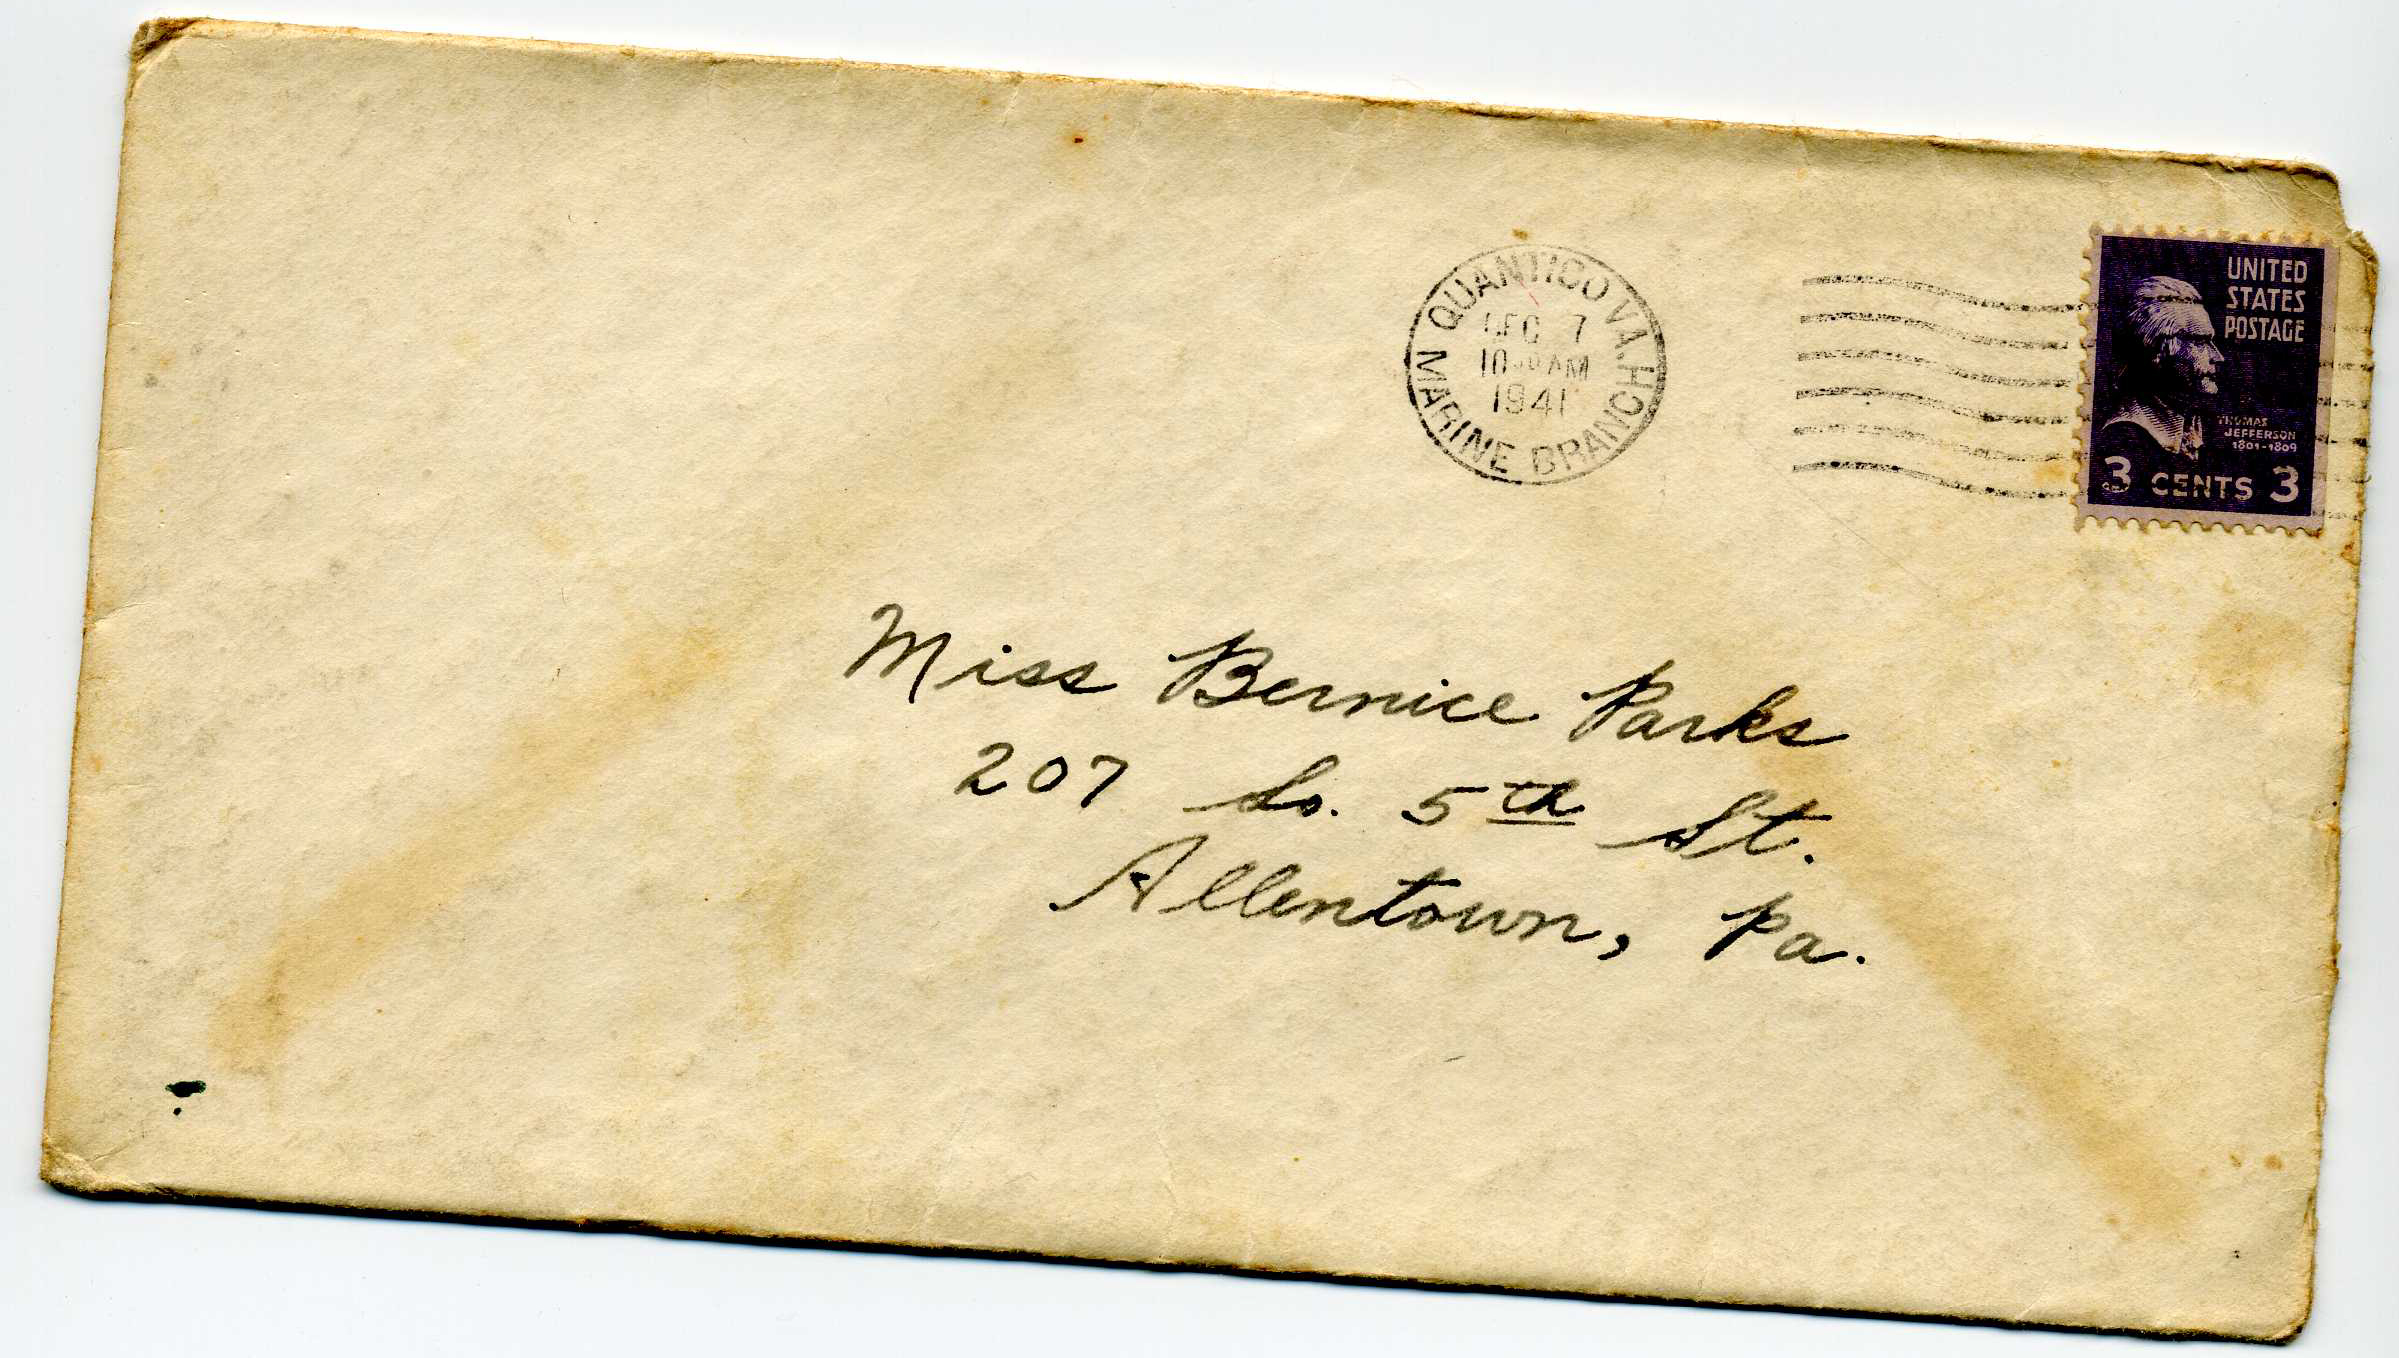 QUANTICO VA.
DEC 7
AM
1941
MARINE BRANCH
UNITED
STATES
POSTAGE
THOMAS
JEFFERSON
1801-1809
3 CENTS 3
Miss Bernice Parks
207 So. 5th St.
Allentown, Pa.